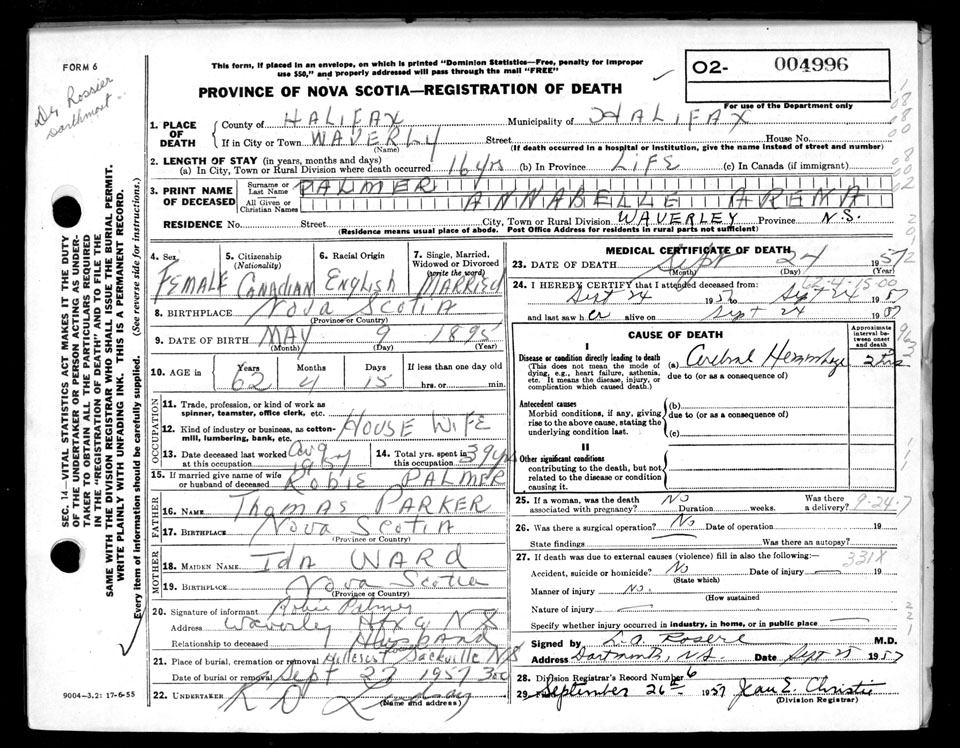 FORM 6
This form, if placed in an envelope, on which is printed "Dominion Statistics—Free, penalty for improper
use $50," and properly addressed will pass through the mail "FREE"
PROVINCE OF NOVA SCOTIA—REGISTRATION OF DEATH
O2- 004996
For use of the Department only
Dr Rossier
Dartmouth
SEC. 14—VITAL STATISTICS ACT MAKES IT THE DUTY
OF THE UNDERTAKER OR PERSON ACTING AS UNDER-
TAKER TO OBTAIN ALL THE PARTICULARS REQUIRED
IN THE "REGISTRATION OF DEATH" AND TO FILE THE
SAME WITH THE DIVISION REGISTRAR WHO SHALL ISSUE THE BURIAL PERMIT.
WRITE PLAINLY WITH UNFADING INK. THIS IS A PERMANENT RECORD.
Every item of information should be carefully supplied. (See reverse side for instructions.)
1. PLACE OF DEATH
County of HALIFAX Municipality of HALIFAX
If in City or Town WAVERLY Street House No.
(Name) (If death occurred in a hospital or institution, give the name instead of street and number)
2. LENGTH OF STAY (in years, months and days)
(a) In City, Town or Rural Division where death occurred 16 yrs (b) In Province LIFE (c) In Canada (if immigrant)
3. PRINT NAME OF DECEASED
Surname or Last Name PALMER
All Given or Christian Names ANNABELLE ARENA
RESIDENCE No. Street City, Town or Rural Division WAVERLEY Province N.S.
(Residence means usual place of abode. Post Office Address for residents in rural parts not sufficient)
4. Sex 5. Citizenship (Nationality) 6. Racial Origin 7. Single, Married, Widowed or Divorced (write the word)
FEMALE CANADIAN ENGLISH MARRIED
8. BIRTHPLACE NOVA SCOTIA
(Province or Country)
9. DATE OF BIRTH MAY 9 1895
(Month) (Day) (Year)
10. AGE in Years Months Days If less than one day old
62 4 15 hrs. or min.
OCCUPATION
11. Trade, profession, or kind of work as
spinner, teamster, office clerk, etc.
12. Kind of industry or business, as cotton-
mill, lumbering, bank, etc. HOUSE WIFE
13. Date deceased last worked
at this occupation Aug 1957
14. Total yrs. spent in
this occupation 39 yrs
15. If married give name of wife
or husband of deceased ROBIE PALMER
FATHER
16. NAME THOMAS PARKER
17. BIRTHPLACE NOVA SCOTIA
(Province or Country)
MOTHER
18. MAIDEN NAME IDA WARD
19. BIRTHPLACE Nova Scotia
(Province or Country)
20. Signature of informant Robie Palmer
Address Waverley Hfx Co N.S
Relationship to deceased HUSBAND
21. Place of burial, cremation or removal Sackville N.S
Date of burial or removal Sept 27 1957
22. UNDERTAKER
(Name and address)
9004—3.2: 17-6-55
MEDICAL CERTIFICATE OF DEATH
23. DATE OF DEATH Sept 24 1957
(Month) (Day) (Year)
24. I HEREBY CERTIFY that I attended deceased from:
Sept 24 1957 to Sept 24 1957
and last saw her alive on Sept 24 1957
CAUSE OF DEATH
Approximate interval between onset and death
I
Disease or condition directly leading to death
(This does not mean the mode of
dying, e.g., heart failure, asthenia,
etc. It means the disease, injury, or
complication which caused death.)
(a) Cerebral Hemorrhage 2 hrs
due to (or as a consequence of)
Antecedent causes
Morbid conditions, if any, giving
rise to the above cause, stating the
underlying condition last.
(b)
due to (or as a consequence of)
(c)
II
Other significant conditions
contributing to the death, but not
related to the disease or condition
causing it.
25. If a woman, was the death
associated with pregnancy? No Duration weeks. Was there a delivery? 9-24-7
26. Was there a surgical operation? No Date of operation 19
State findings Was there an autopsy?
27. If death was due to external causes (violence) fill in also the following:—
331X
Accident, suicide or homicide? No Date of injury 19
(State which)
Manner of injury No.
(How sustained
Nature of injury
Specify whether injury occurred in industry, in home, or in public place
Signed by M.D.
Address Dartmouth, N.S. Date Sept 25 1957
28. Division Registrar's Record Number 6
29. September 26th 1957 Jean E. Christie
(Division Registrar)